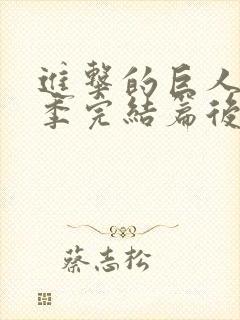 進擊的巨人
季完結篇後
蔡志松